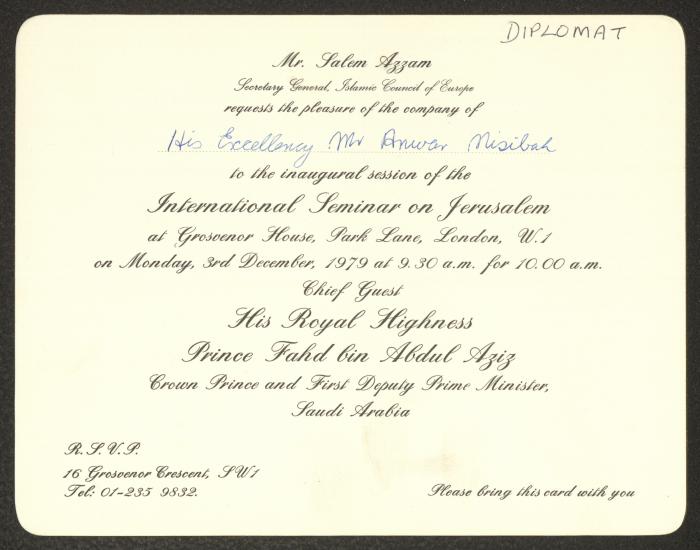 DIPLOMAT
Mr. Salem Azzam
Secretary General, Islamic Council of Europe
requests the pleasure of the company of
His Excellency Mr Anwar Nisibah
to the inaugural session of the
International Seminar on Jerusalem
at Grosvenor House, Park Lane, London, W.1
on Monday, 3rd December, 1979 at 9.30 a.m. for 10.00 a.m.
Chief Guest
His Royal Highness
Prince Fahd bin Abdul Aziz
Crown Prince and First Deputy Prime Minister,
Saudi Arabia
R.S.V.P.
16 Grosvenor Crescent, SW1
Tel: 01-235 9832.
Please bring this card with you